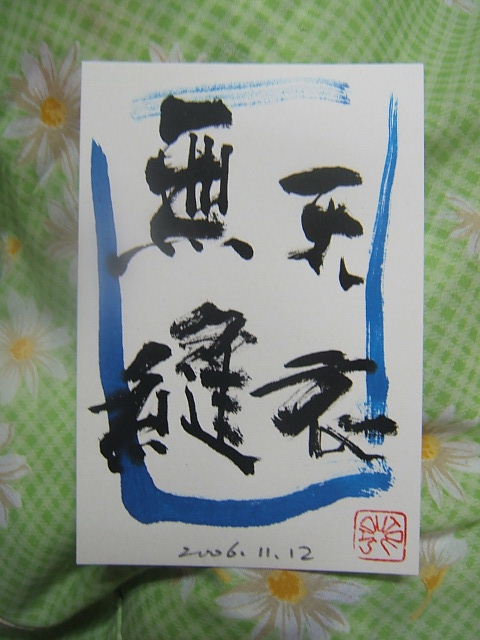 天衣
無縫
2006.11.12